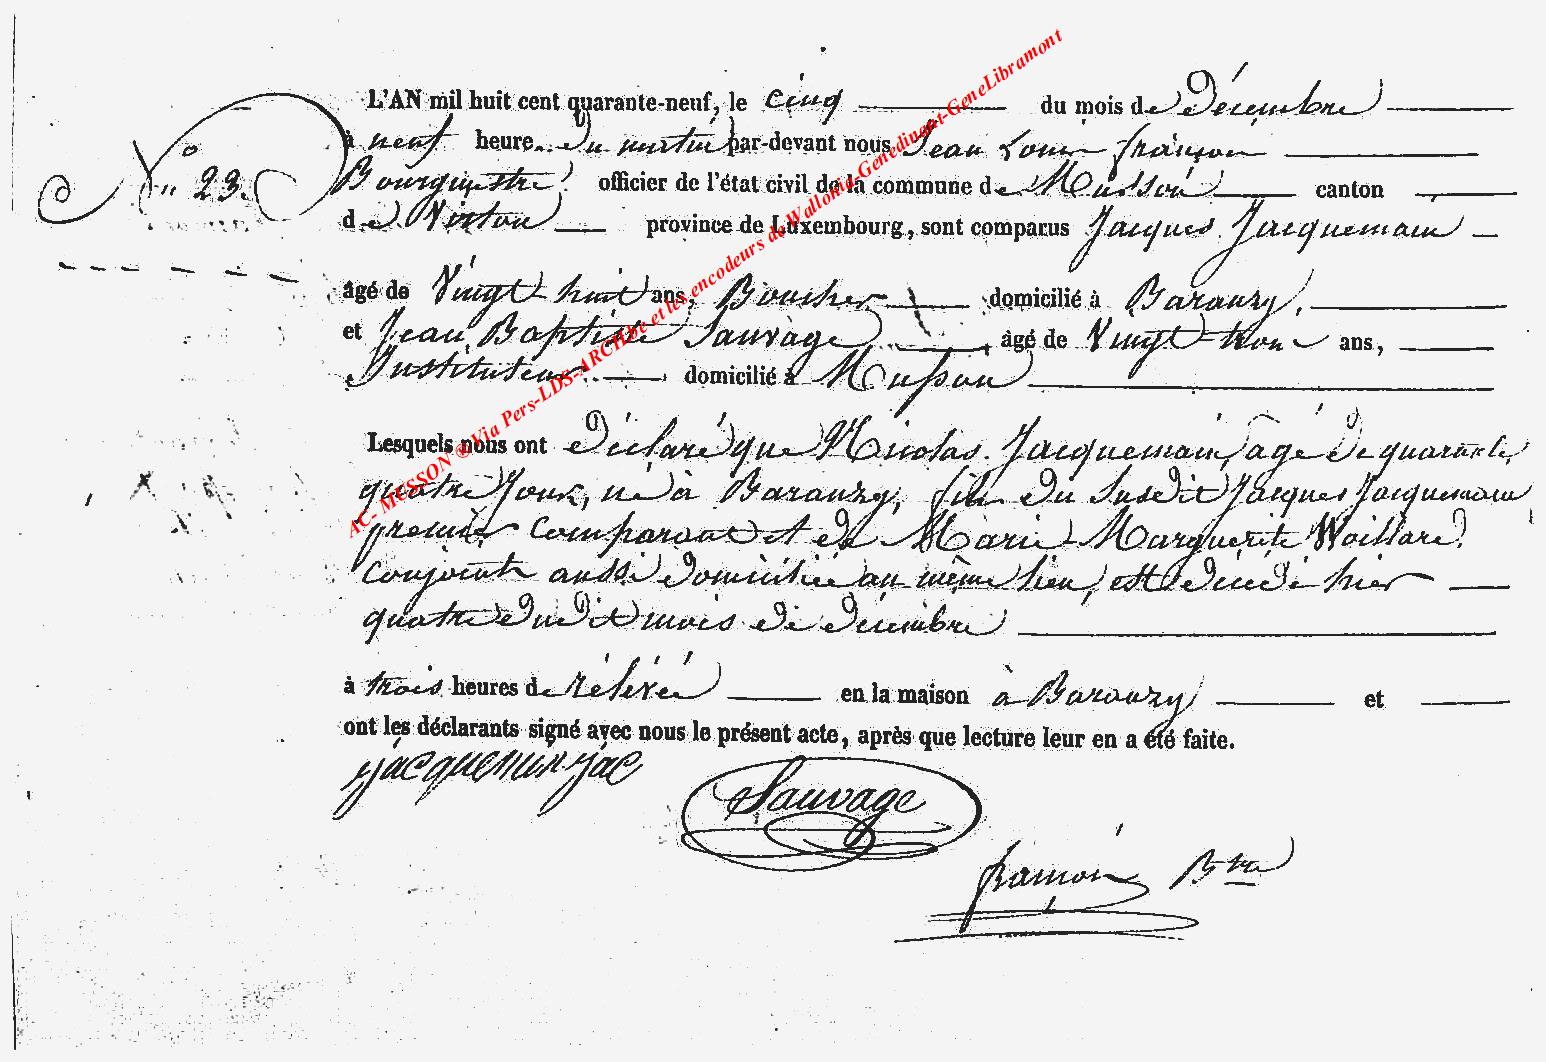 L'AN mil huit cent quarante-neuf, le cinq du mois de Décembre
N° 23. à neuf heure du matin par-devant nous Jean Louis françois
Bourgmestre officier de l'état civil de la commune de Musson canton
de Virton province de Luxembourg, sont comparus Jacques Jacquemain
âgé de Vingt-huit ans, Boucher domicilié à Baranzy,
et Jean Baptiste Sauvage, âgé de Vingt-trois ans,
Instituteur domicilié à Musson
Lesquels nous ont Déclaré que Nicolas Jacquemain, agé de quarante
quatre Jours, né à Baranzy, fils du Susdit Jacques Jacquemain
premier Comparant et de Marie-Marguerite Waillard
Conjoints aussi domiciliés au même lieu, est décédé hier
quatre dudit mois de décembre
à trois heures de rélévée en la maison à Baranzy et
ont les déclarants signé avec nous le présent acte, après que lecture leur en a été faite.
jacquemin jac
Sauvage
Bre
AC- MUSSON ® Via Pers-LDS-ARCH.be et les encodeurs de Wallonia-Genedinant-GeneLibramont